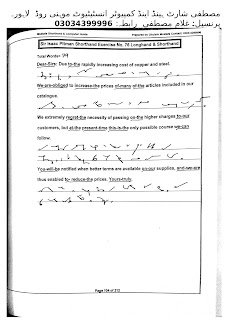 مصطفٰی شارٹ ہینڈ اینڈ کمپیوٹر انسٹیٹیوٹ موہنی روڈ لاہور۔
پرنسپل: غلام مصطفٰی رابطہ: 03034399996
Sir Isaac Pitman Shorthand Exercise No. 76 Longhand & Shorthand
Total Words:
Dear-Sirs: Due to-the rapidly increasing cost of copper and steel.
We-are-obliged to increase-the prices of-many of-the articles included in our
catalogue.
We extremely regret-the necessity of passing on-the higher charges to-our
customers, but at-the present-time this-is-the only possible course we-can
follow.
You-will-be notified when better terms are available on-our supplies, and-we-are
thus enabled to-reduce-the prices. Yours-truly,
Page 104 of 212